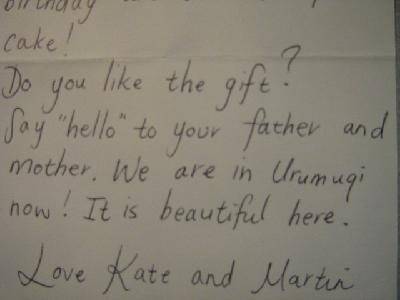 birthday
cake!
Do you like the gift?
Say "hello" to your father and
mother. We are in Urumuqi
now! It is beautiful here.
Love Kate and Martin